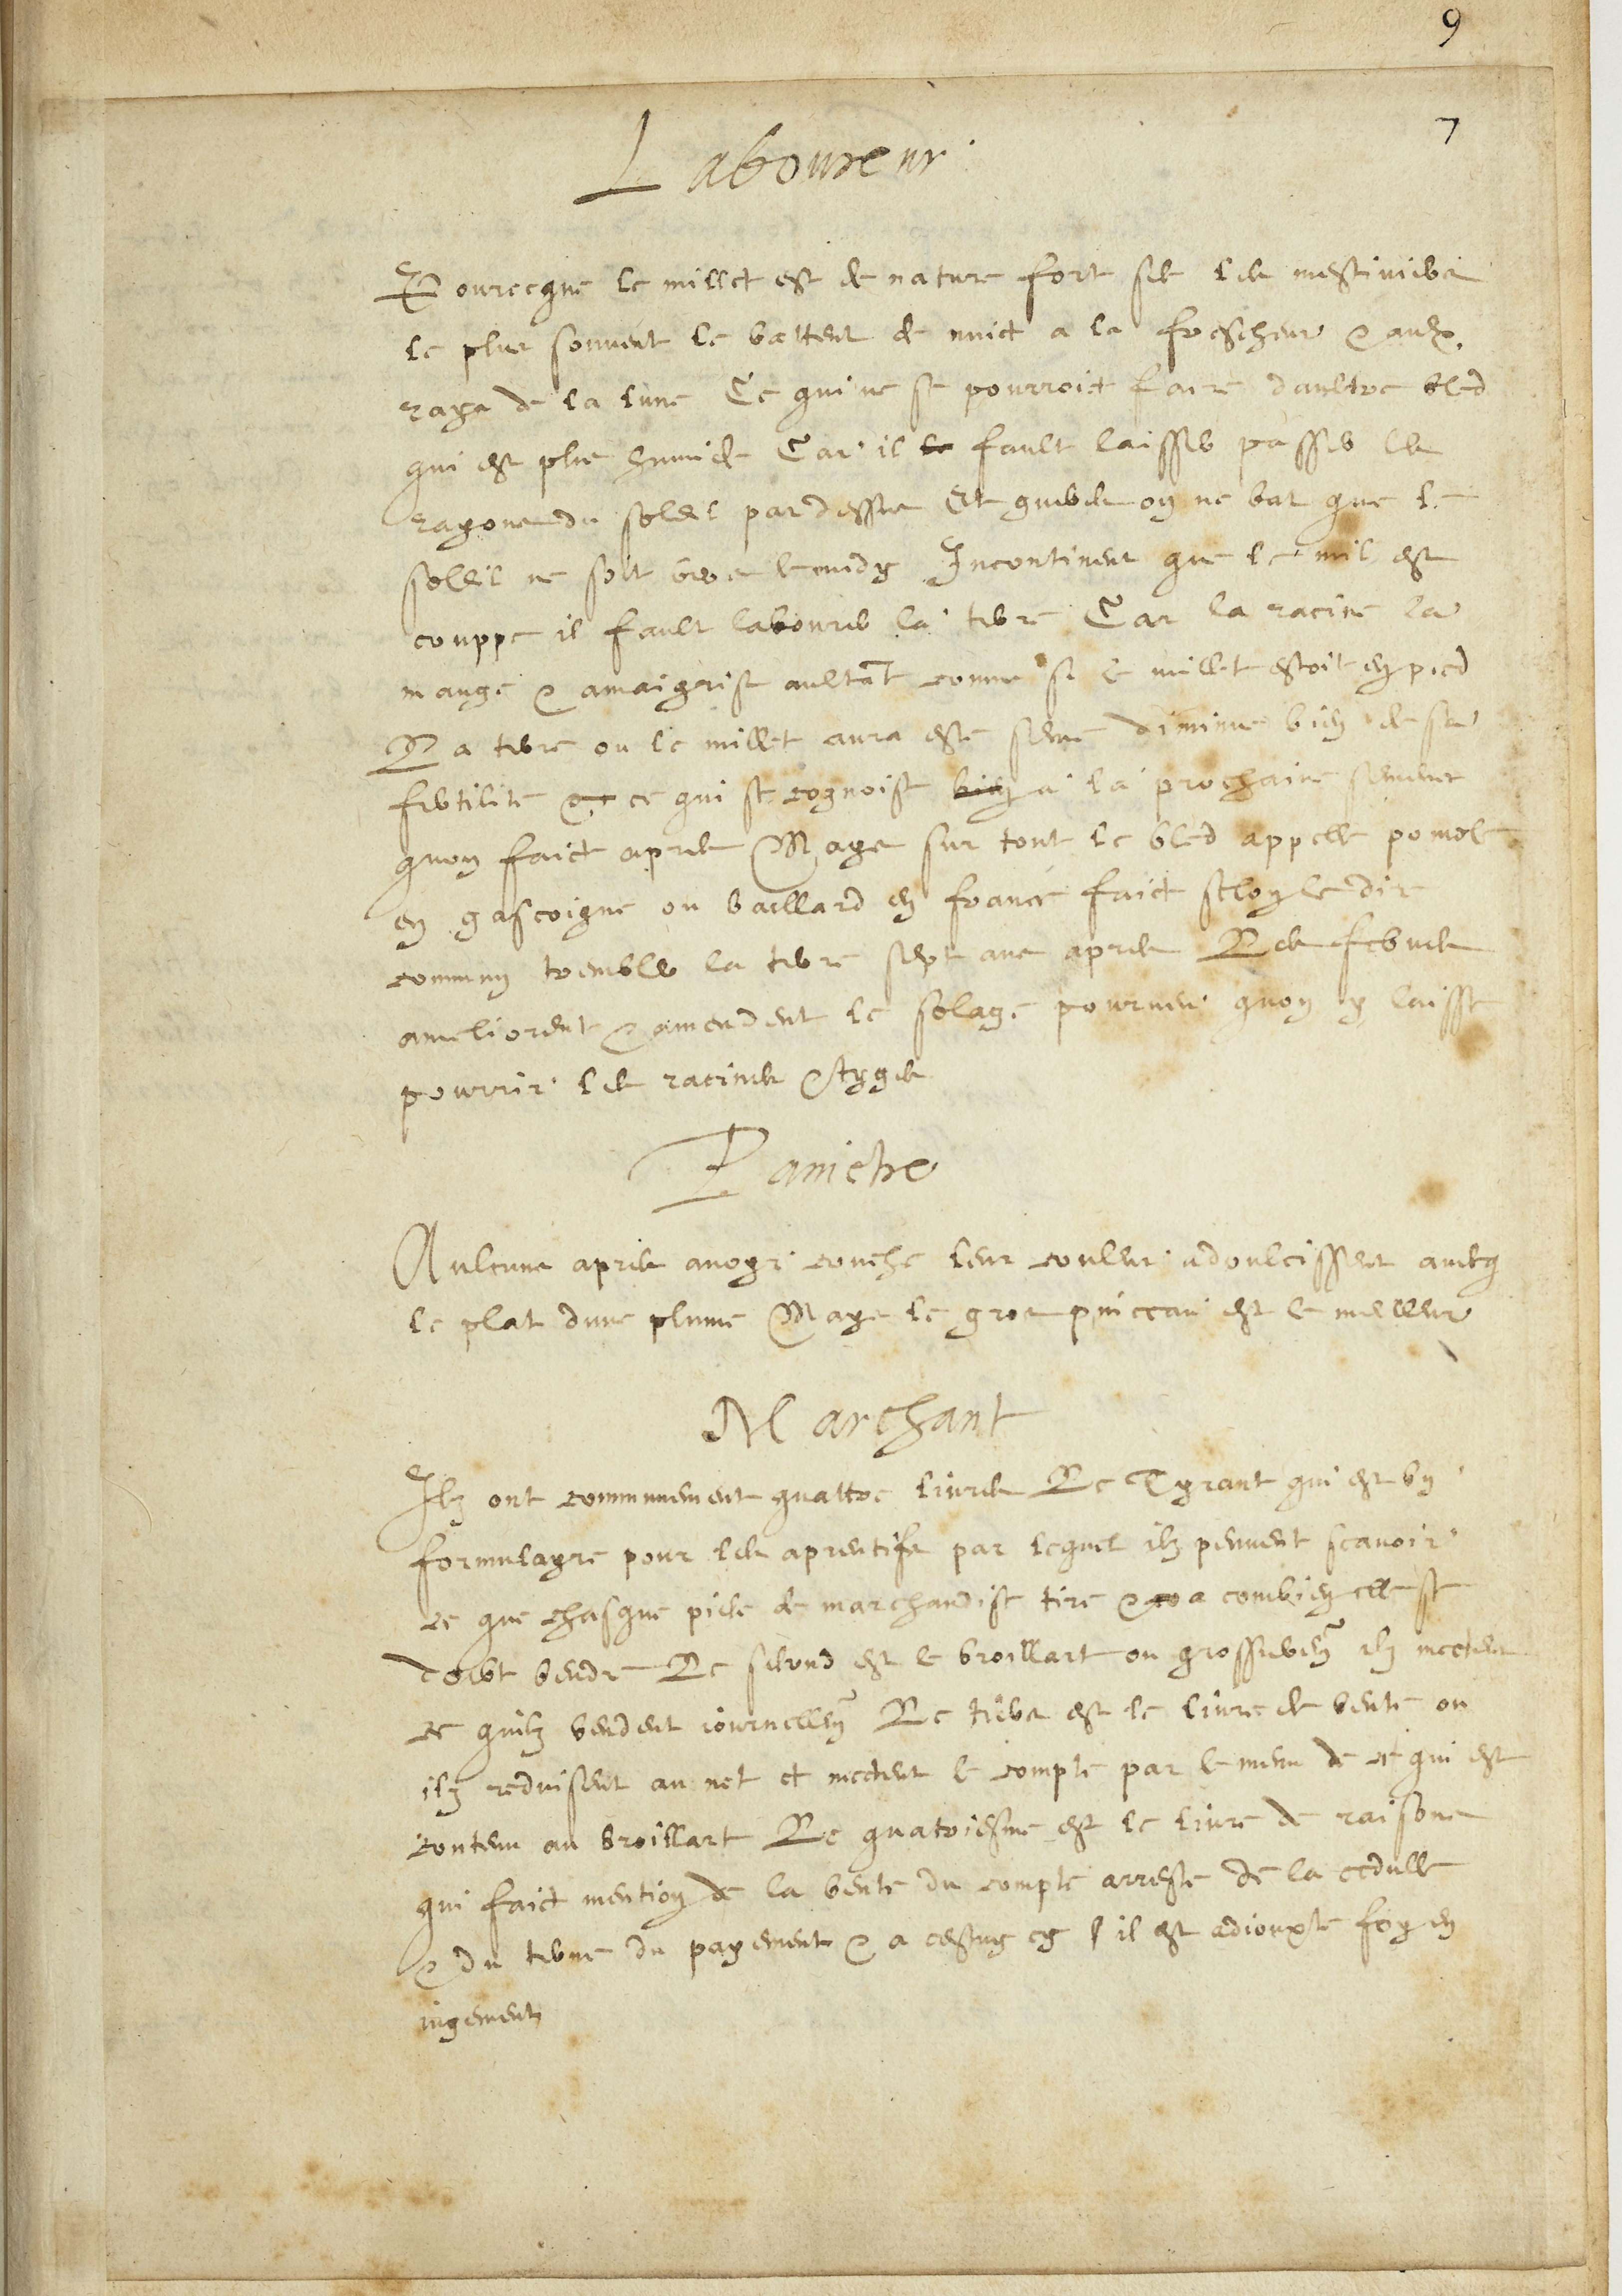 9
7
Laboureur
Pourceque le millet est de nature fort sec les mestiviers
le plus souvent le battent de nuict a la frescheur & aulx
rays de la lune Ce qui ne se pourroict faire daultre bled
qui est plus humide Car il le fault laisser passer les
rayons du soleil par dessus Et guieres on ne bat que le
soleil ne soit vers le midy Incontinent que le mil est
couppe il fault labourer la terre Car la racine la
mange & amaigrist aultãt comme si le millet estoit en pied
La terre ou le millet aura este seme diminue bien de sa
fertilite & ce qui se cognoist bien a la prochaine semence
quon faict apres Mays sur tout le bled appelle pomole
en gascoigne ou baillard en france faict selon le dire
commun trembler la terre sept ans apres Les febves
ameliorent & amendent le solage pourveu quon y laisse
pourrir les racines & tyges
Painctre
Aulcuns apres avoyr couche leur couleur adoulcissent avecq
le plat dune plume Mays le gros pinceau est le meilleur
Marchant
Ilz ont communement quattre livres Le Tyrant qui est un
formulayre pour les aprentifs par lequel ilz peuvent scavoir
ce que chasque piece de marchandise tire & a combien elle se
doibt vendre Le second est le broillart ou grossierem̃ ilz mectent
ce quilz vendent journellem̃ Le tiers est le livre de vente ou
ilz reduisent au net et mectent le compte par le menu de ce qui est
contenu au broillart Le quatriesme est le livre de raisons
qui faict mention de la vente du compte arreste de la cedulle
& du terme du payement & a cestuy cy il est adjouxte foy en
jugement